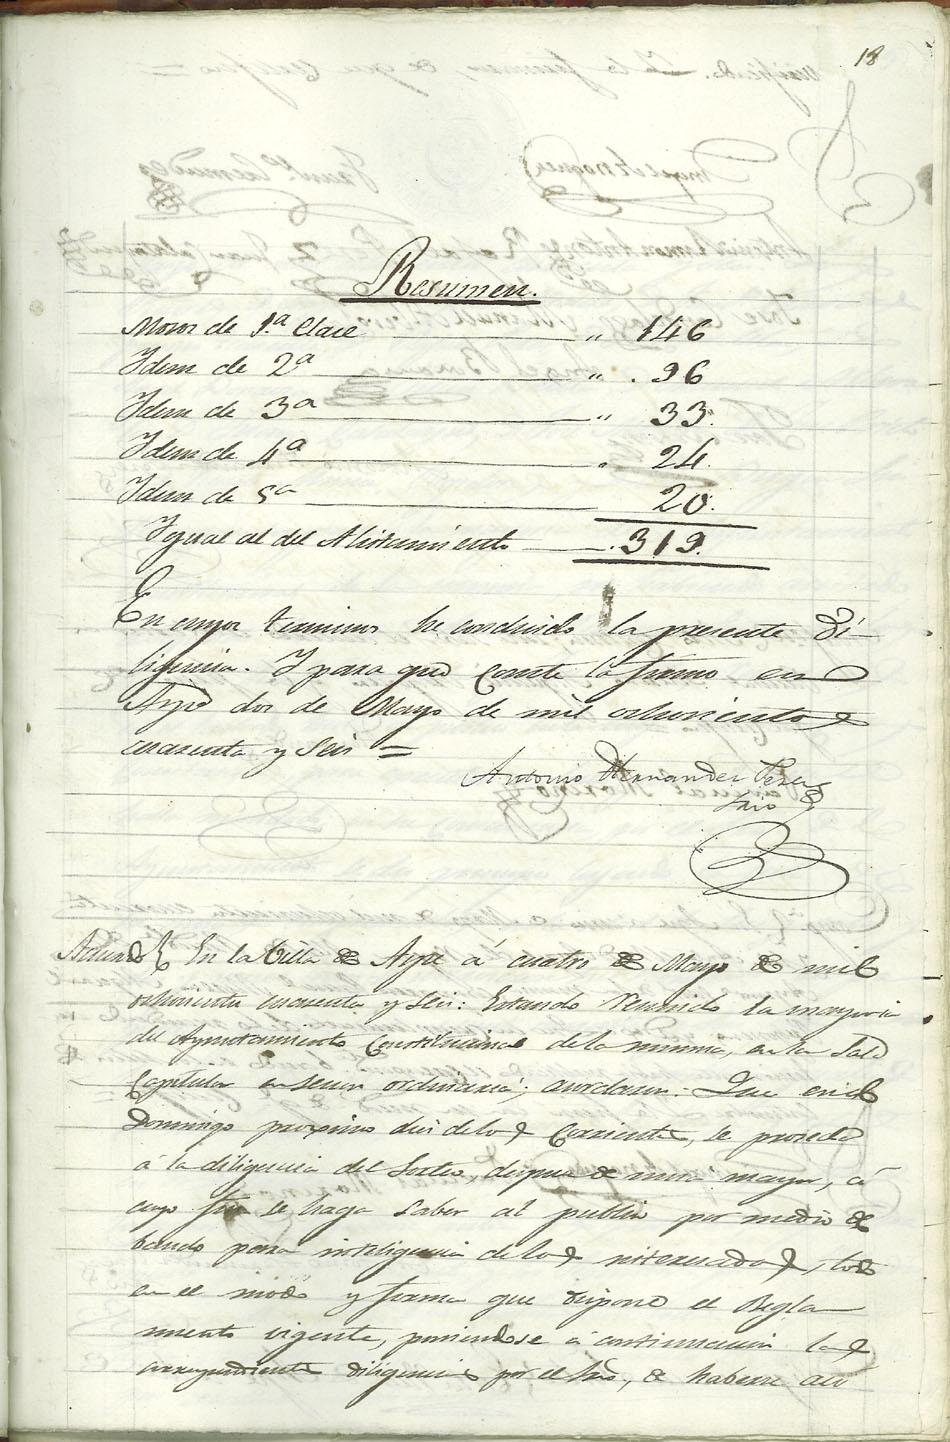 18
Resumen.
Mozos de 1.ª Clase " 146
Idem de 2ª " . 96
Idem de 3ª " 33.
Idem de 4ª " 24.
Idem de 5ª 20.
Igual al del Alistamiento . 319.
En cuyos terminos he concluido la presente di-
ligencia. Y para que conste la firmo en
Aspe dos de Mayo de mil ochocientos
cuarenta y seis =
Antonio Hernandez Perez
Srio
Acuerdo En la Villa de Aspe á cuatro de Mayo de mil
ochocientos cuarenta y seis: Estando reunido la mayoria
del Ayuntamiento Constitucional de la misma, en la Sala
Capitular en sesion ordinaria; acordaron: Que en el
Domingo proximo diez de los Corrientes, se proceda
á la diligencia del Sorteo, despues de misa mayor, á
cuyo fin se haga saber al publico por medio de
bando para inteligencia de los interesados, todo
en el modo y forma que dispone el Regla
mento vigente, poniendose á continuacion las
correspondientes diligencias por el Srio, de haberse asi